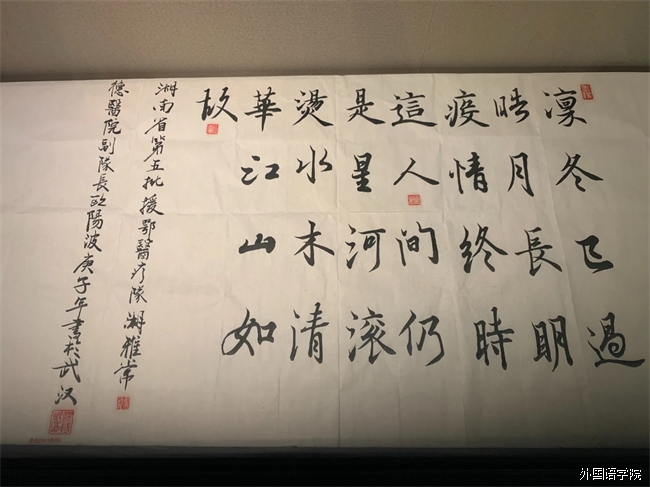 凜冬已過
皓月長明
疫情終時
這人间仍
是星河滚
燙水木清
華江山如
故
湖南省第五批援鄂醫疗隊湘雅常
德醫院副隊長欧陽波庚子年書於武汉
外国语学院